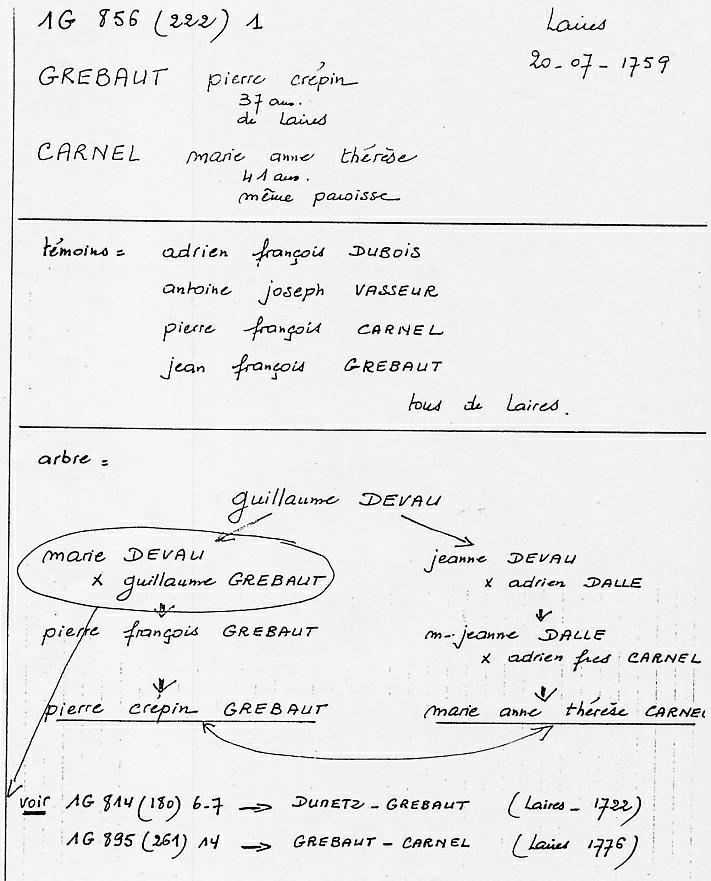 1G 856 (222) 1
Laires
20-07-1759
GREBAUT pierre crépin
37 ans.
de Laires
CARNEL marie anne thérèse
41 ans.
même paroisse
témoins = adrien françois DUBOIS
antoine joseph VASSEUR
pierre françois CARNEL
jean françois GREBAUT
tous de Laires.
arbre =
guillaume DEVAU
marie DEVAU
x guillaume GREBAUT
jeanne DEVAU
x adrien DALLE
pierre françois GREBAUT
m-jeanne DALLE
x adrien fres CARNEL
pierre crépin GREBAUT
marie anne thérèse CARNEL
voir 1G 814 (180) 6-7 → DUNETZ - GREBAUT (Laires - 1722)
1G 895 (261) 14 → GREBAUT - CARNEL (Laires 1776)